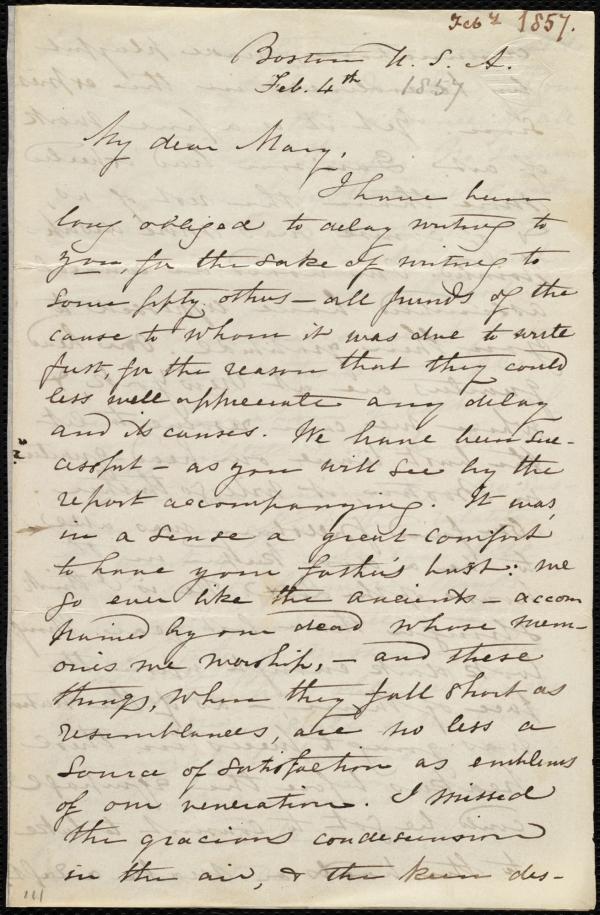 Feb 4 1857.
Boston U. S. A.
Feb. 4th 1857
My dear Mary,
I have been
long obliged to delay writing to
you, for the sake of writing to
some fifty others - all friends of the
cause to whom it was due to write
first, for the reason that they could
less well appreciate any delay
and its causes. We have been suc-
cessful - as you will see by the
report accompanying. It was,
in a sense a great comfort
to have your father's bust: we
go ever like the ancients - accom
panied by our dead whose mem-
ories we worship, - and these
things, when they fall short as
resemblances, are no less a
source of satisfaction as emblems
of our veneration. I missed
the gracious condescension
in the air, & the keen des-